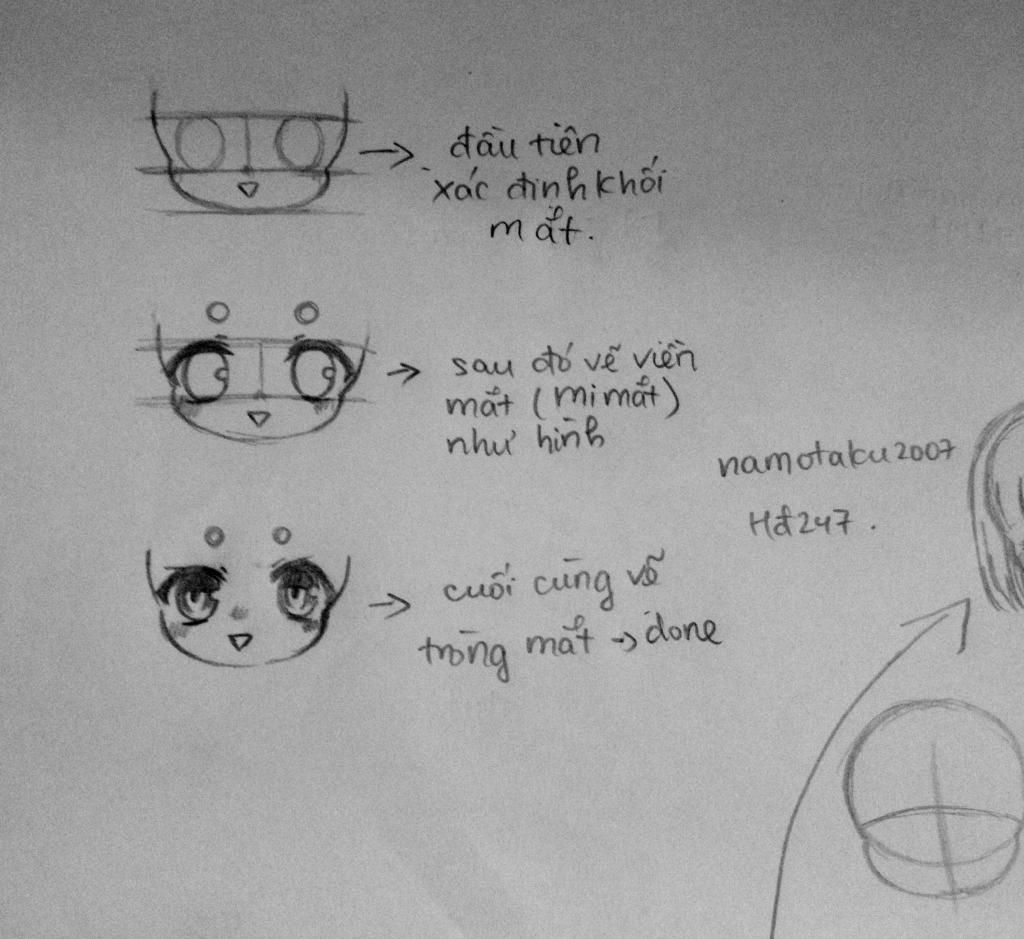 đầu tiên
xác định khối
mắt.
sau đó vẽ viền
mắt (mi mắt)
như hình
namotaku2007
Hđ247.
cuối cùng vẽ
tròng mắt → done